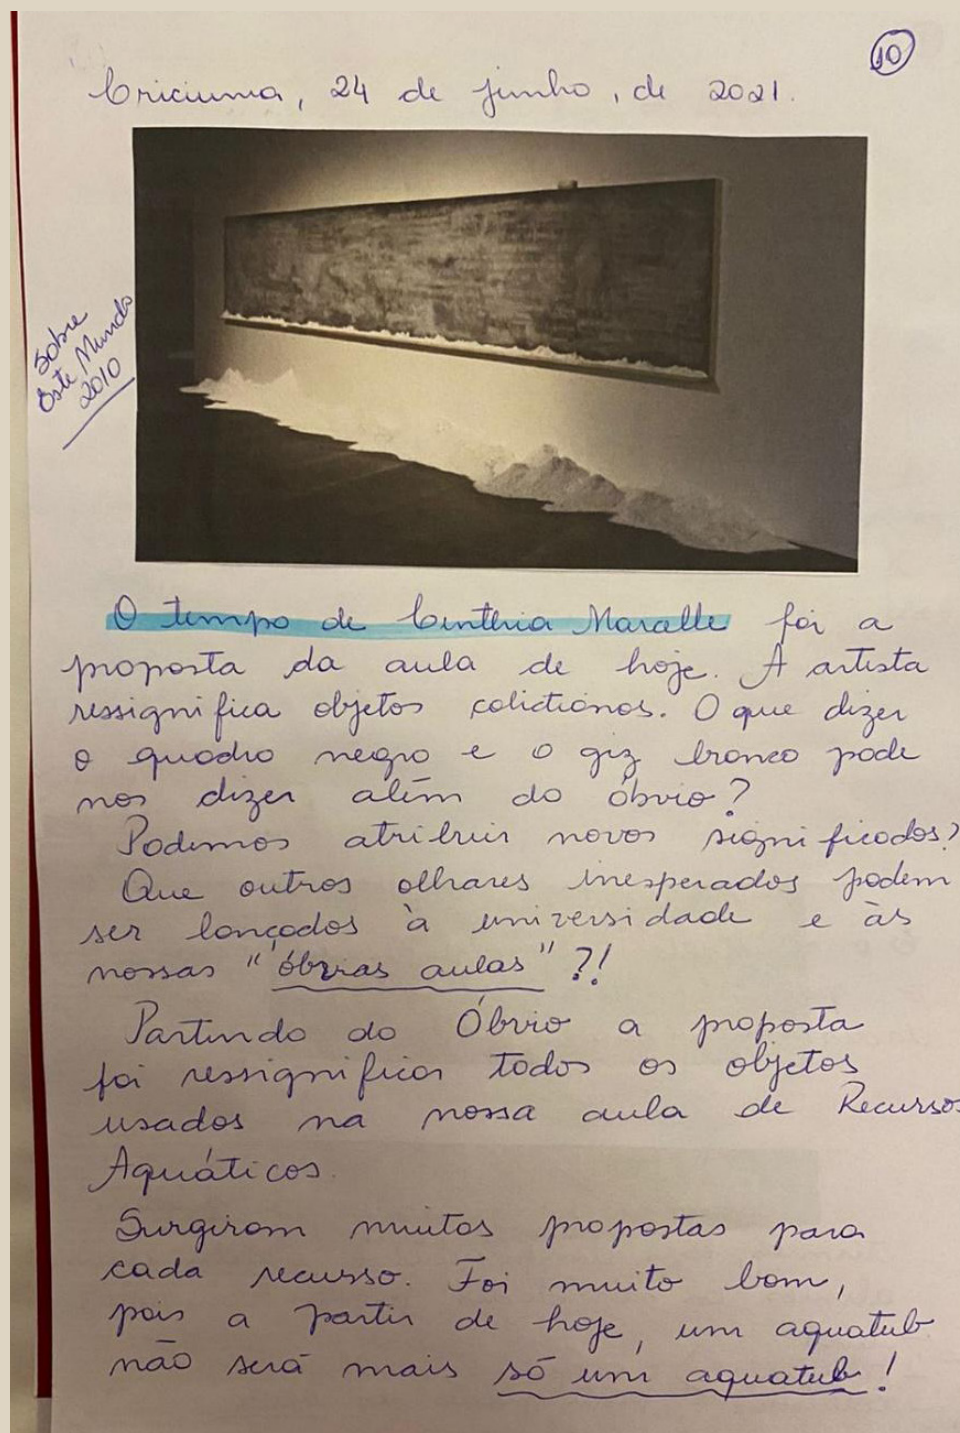 10
Criciuma, 24 de junho, de 2021.
Sobre
Este Mundo
2010
O tempo de Cinthia Marcelle foi a
proposta da aula de hoje. A artista
ressignifica objetos cotidianos. O que dizer
o quadro negro e o giz branco pode
nos dizer além do óbvio?
Podemos atribuir novos significados?
Que outros olhares inesperados podem
ser lançados à universidade e às
nossas "óbvias aulas"?!
Partindo do Óbvio a proposta
foi ressignificar todos os objetos
usados na nossa aula de Recursos
Aquáticos.
Surgiram muitas propostas para
cada recurso. Foi muito bom,
pois a partir de hoje, um aquatub
não será mais só um aquatub!